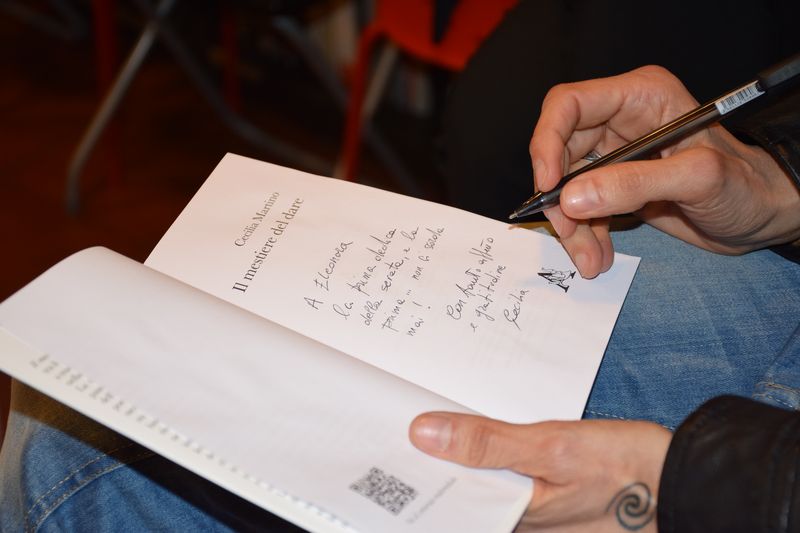 Cecilia Martino
Il mestiere del dare
A Eleonora
la prima dedica
della serata, e la
prima... non si scorda
mai!
Con tanto affetto
e gratitudine
Cecilia